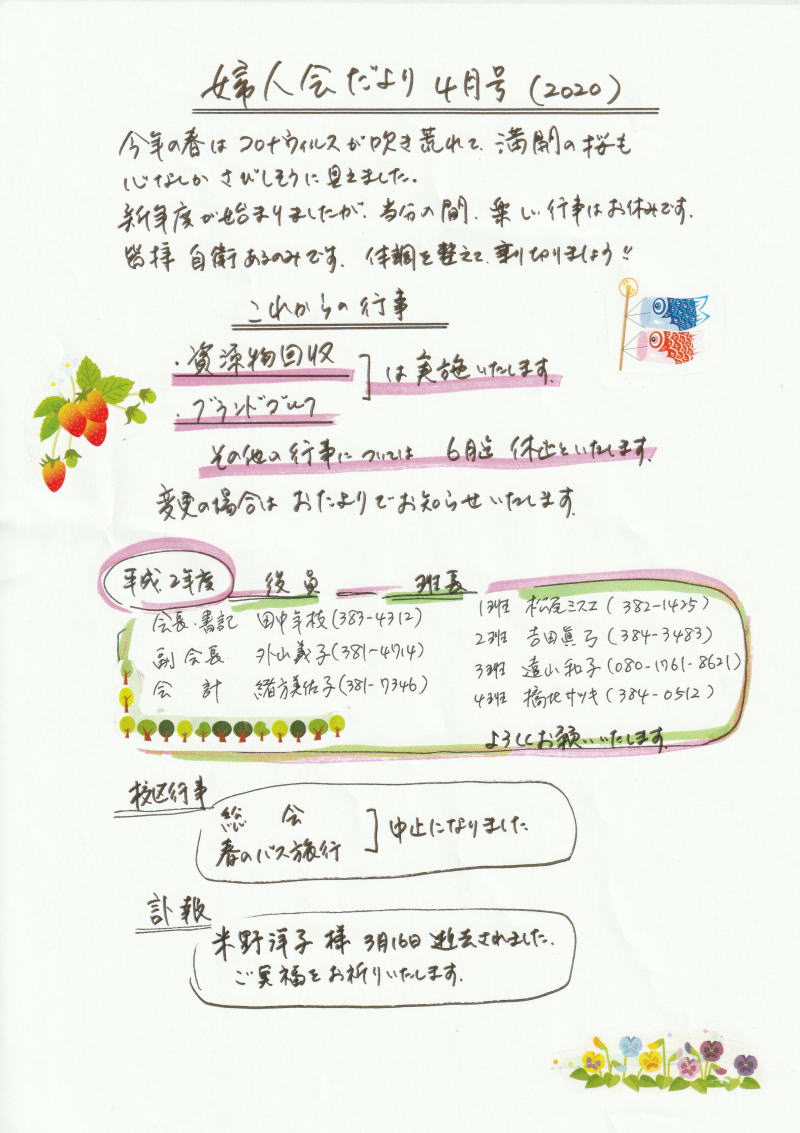 婦人会だより 4月号 (2020)
今年の春は コロナウィルスが吹き荒れて、満開の桜も
心なしか さびしそうに見えました。
新年度が始まりましたが、当分の間、楽しい行事はお休みです。
皆様 自衛あるのみです。体調を整えて、乗り切りましょう!!
これからの行事
・資源物回収
は実施いたします。
・グランドゴルフ
その他の行事については 6月迄 休止といたします。
変更の場合は おたよりでお知らせいたします。
平成2年度 役員 班長
会長・書記 田中年枝(383-4312)
副会長 外山義子(381-4714)
会計 緒方美佐子(381-7346)
1班 松尾ミスエ(382-1425)
2班 吉田眞弓(384-3483)
3班 遠山和子(080-1761-8621)
4班 サツキ(384-0512)
よろしくお願いいたします。
校区行事
総会
春のバス旅行
中止になりました
訃報
米野洋子様 3月16日 逝去されました。
ご冥福をお祈りいたします。